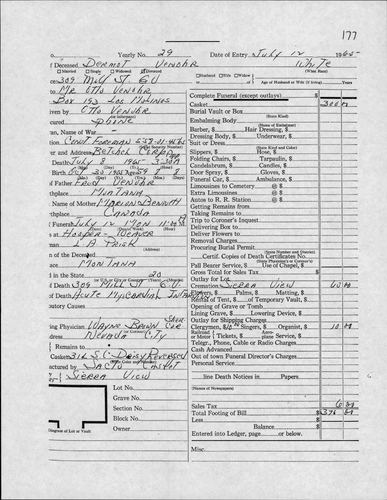 177
o. Yearly No. 29 Date of Entry July 12 1965
f Deceased Dermot Venohr White
Married Single Widowed Divorced Husband Wife Widow (What Race)
309 Mill St. G.V. Age of Husband or Wife (if living)
to Mr Otto Venohr Complete Funeral (except outlays) $
Box 193 Los Molinos Casket 300
iven by Otto Venohr Burial Vault or Box
(or informant) (State Kind)
ured Phone Embalming Body
(Name of Embalmer)
an, Name of War Barber, $ Hair Dressing, $
Dressing Body, $ Underwear, $
on Cent Foreman Suit or Dress
(State Kind and Color)
er and Address Slippers, $ Hose, $
Death July 8 1965 Folding Chairs, $ Tarpaulin, $
Candelabrum, $ Candles, $
Birth Oct 30 1905 Age 59 8 8 Door Spray, $ Gloves, $
Father Fred Venohr Funeral Car, $ Ambulance, $
hplace Montana Limousines to Cemetery @ $
Extra Limousines @ $
Name of Mother Marion Bennett Autos to R. R. Station @ $
Getting Remains from
thplace Canada Taking Remains to
f Funeral July 12 Mon 11 Trip to Coroner's Inquest
Delivering Box to
n Hooper-Weaver Deliver Flowers to
L A Price Removal Charges
Procuring Burial Permit
n of the Deceased (State Number and District)
Certif. Copies of Death Certificates No.
Montana Pall Bearer Service, $ Use of Chapel, $
Gross Total for Sales Tax $
d in the State 20 Outlay for Lot
f Death 309 Mill St G.V. Cremation Sierra View 60
of Death Acute Myocardial Infarct Singers, $ Palms, $ Matting, $
Rental of Tent, $ of Temporary Vault, $
butory Causes Opening of Grave or Tomb
Lining Grave, $ Lowering Device, $
Outlay for Shipping Charges
ing Physician Wayne Brown Clergymen, $ Singers, $ Organist, $ 10
dress Nevada City Place Service, $
Telegr., Phone, Cable or Radio Charges
Remains to Cash Advanced
Casket Out of town Funeral Director's Charges
Personal Service
actured by Sacto Casket
y Sierra View line Death Notices in Papers
Lot No. (Names of Newspapers)
Grave No.
Section No. Sales Tax 6
Block No. Total Footing of Bill $ 376
Less $
Owner Balance $
Diagram of Lot or Vault Entered into Ledger, page or below.
Misc.